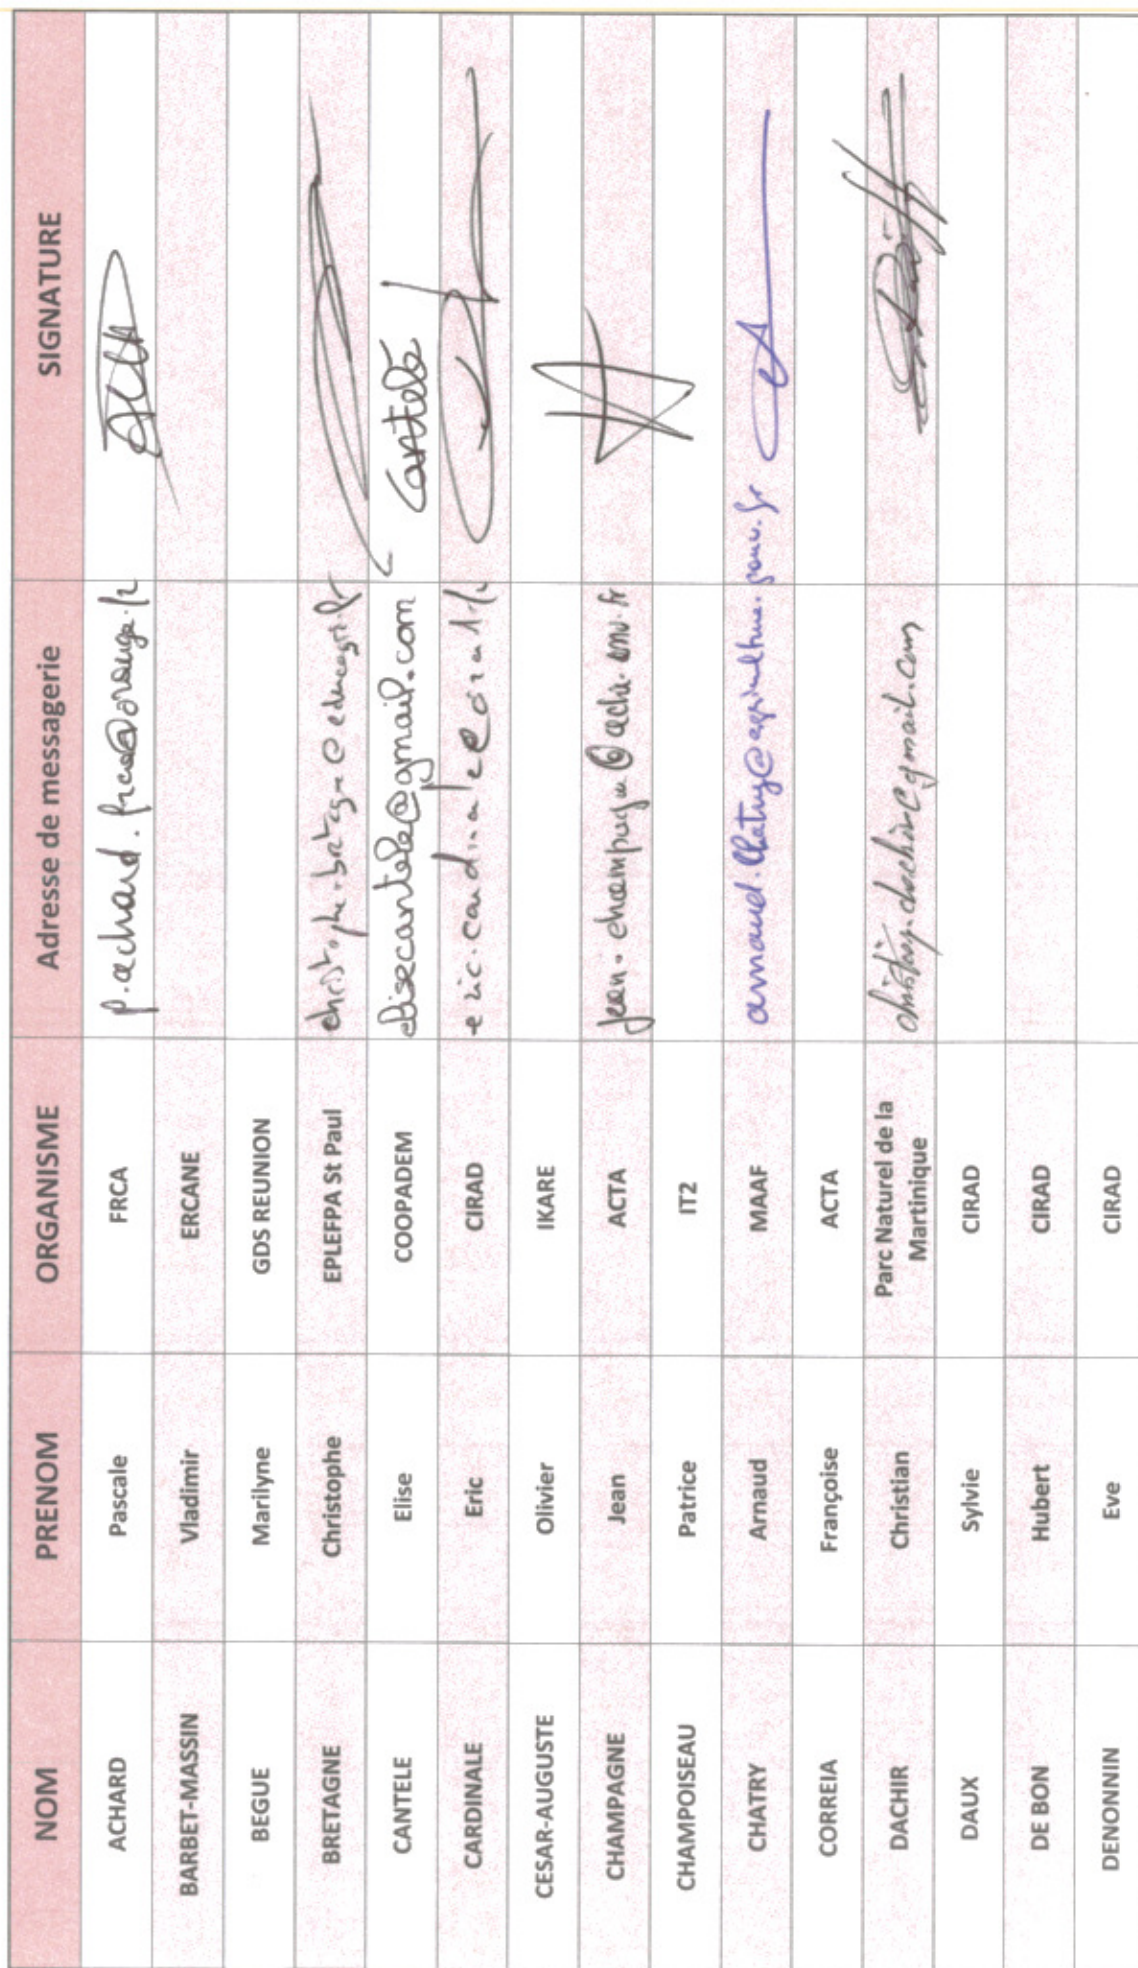 NOM PRENOM ORGANISME Adresse de messagerie SIGNATURE
ACHARD Pascale FRCA p.achard.frca@orange.fr
BARBET-MASSIN Vladimir ERCANE
BEGUE Marilyne GDS REUNION
BRETAGNE Christophe EPLEFPA St Paul christophe.bretagne@educagri.fr
CANTELE Elise COOPADEM elisecantele@gmail.com Cantele
CARDINALE Eric CIRAD
CESAR-AUGUSTE Olivier IKARE
CHAMPAGNE Jean ACTA
CHAMPOISEAU Patrice IT2
CHATRY Arnaud MAAF arnaud.chatry@agriculture.gouv.fr
CORREIA Françoise ACTA
DACHIR Christian Parc Naturel de la
Martinique
DAUX Sylvie CIRAD
DE BON Hubert CIRAD
DENONNIN Eve CIRAD